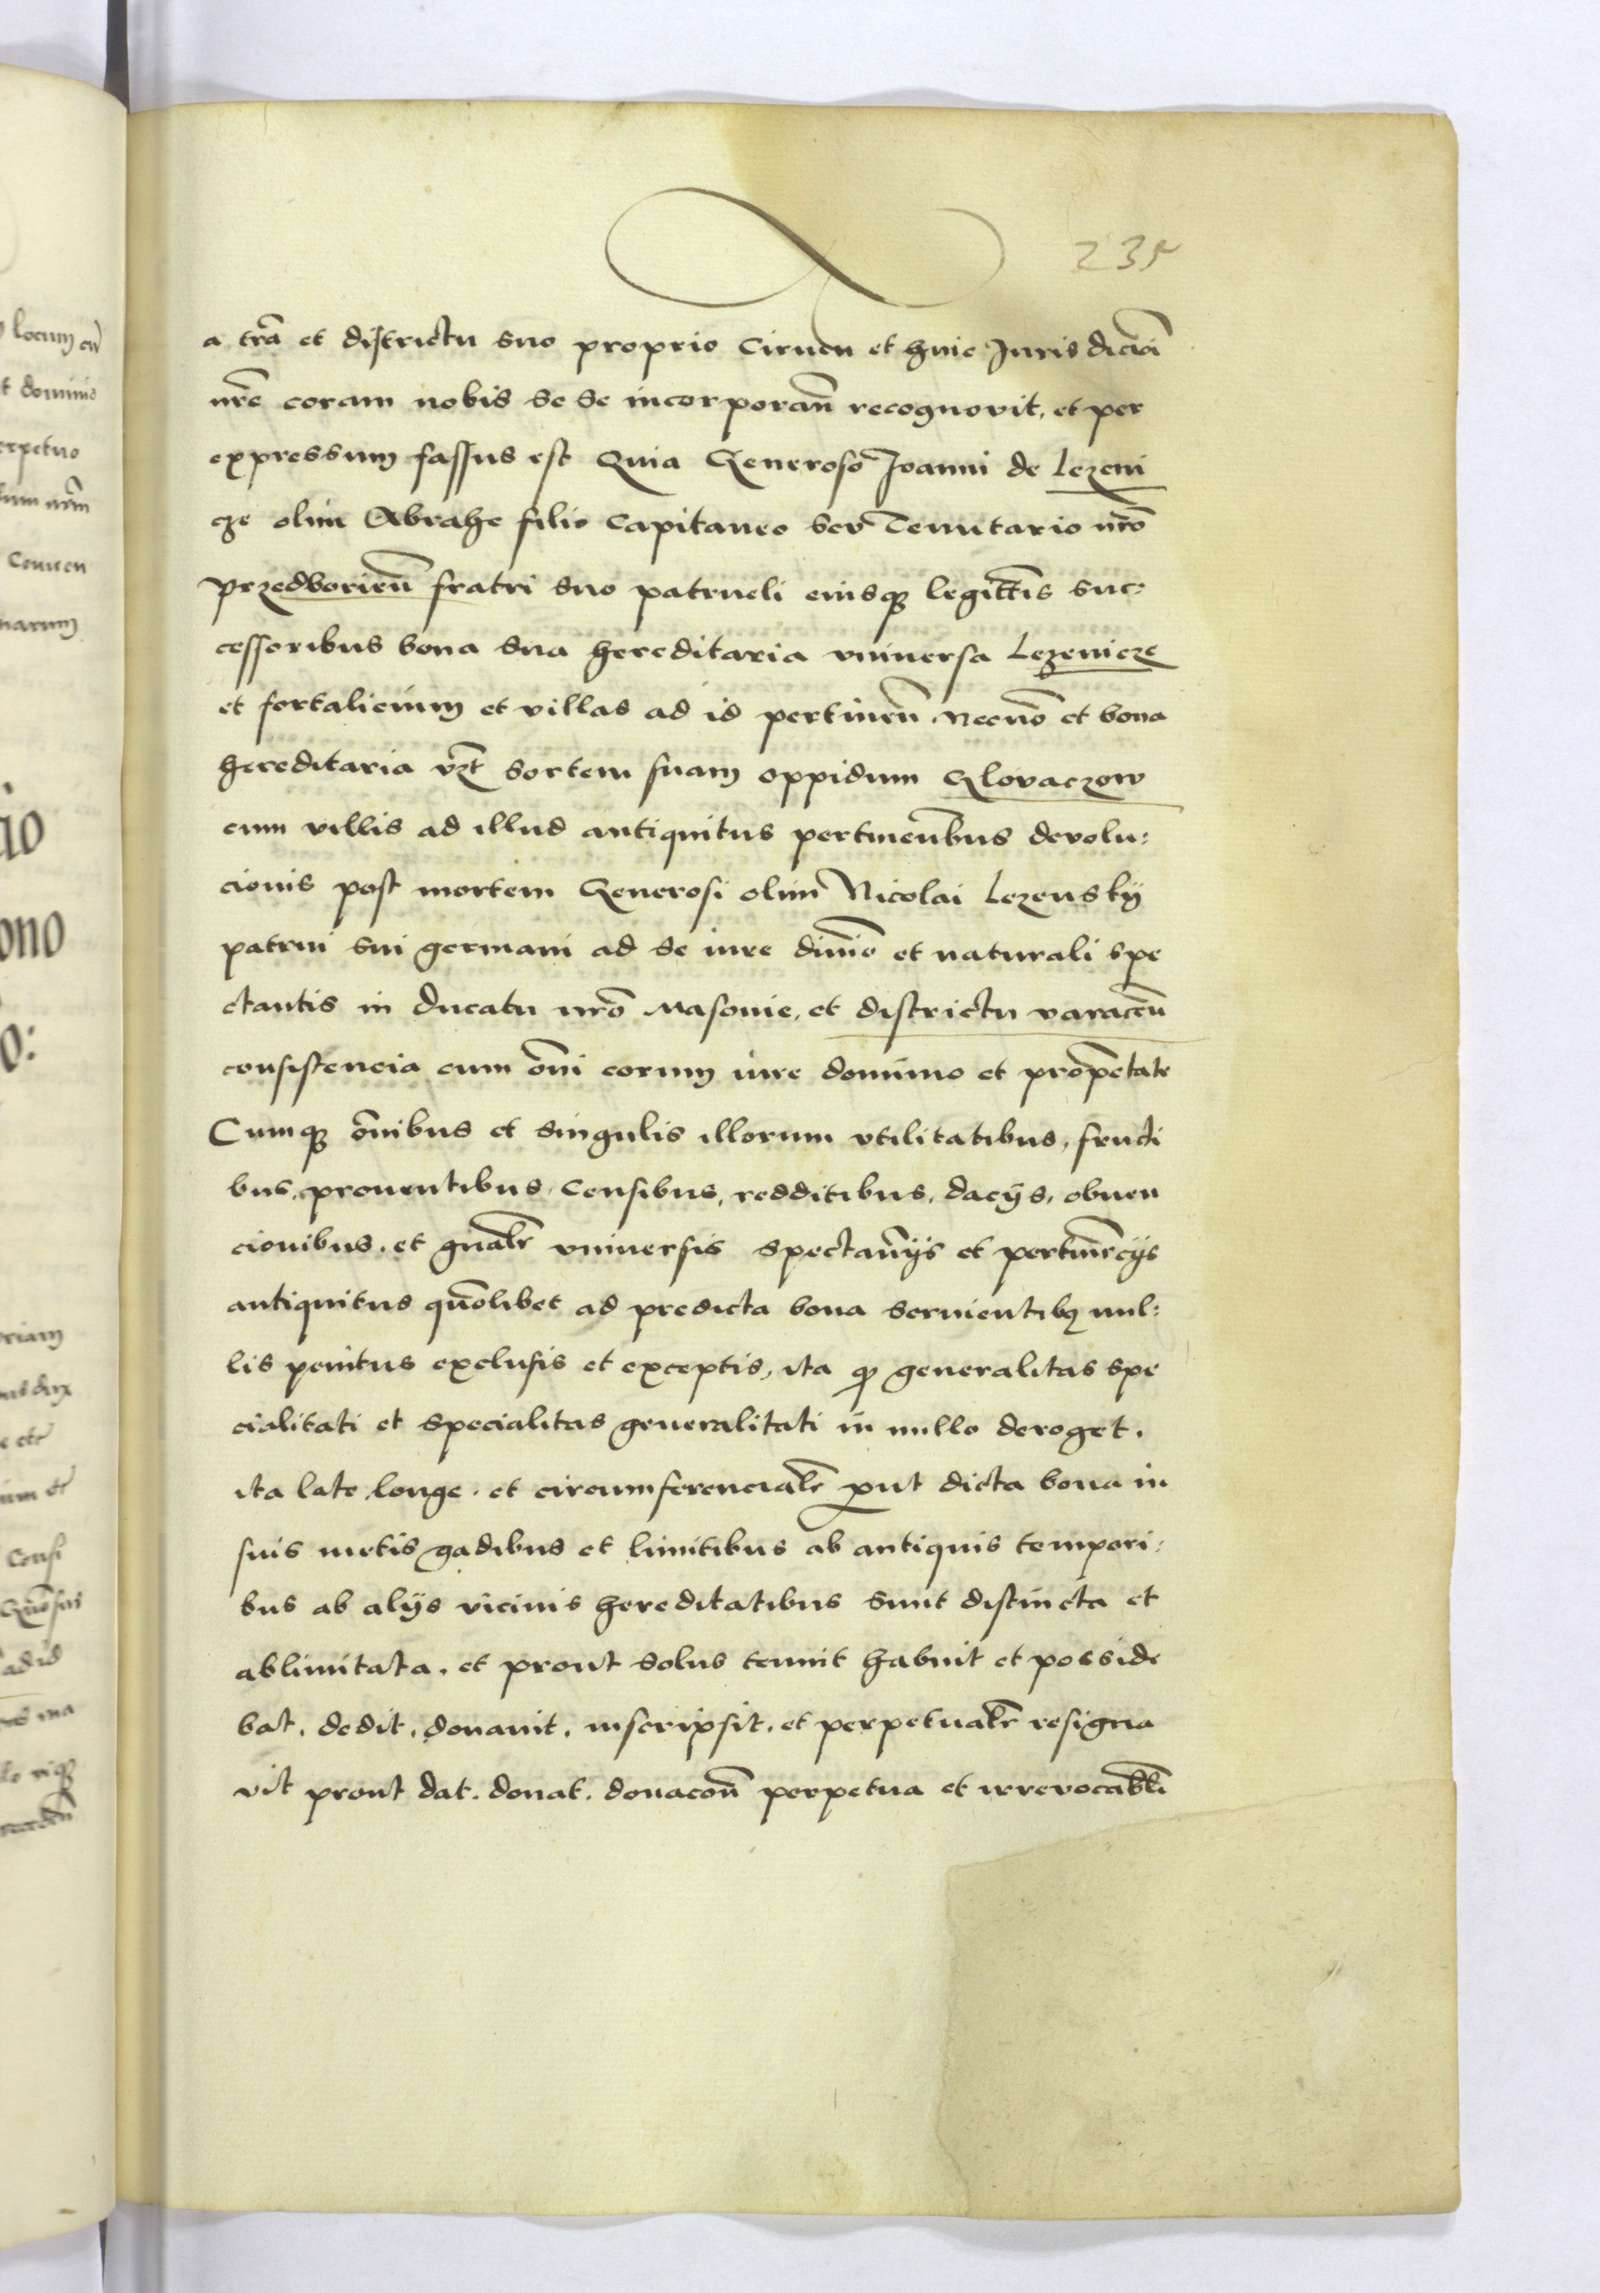 235
a tr̄a et districtu suo proprio Cirnen et huic Jurisdicioī
nr̄e coram nobis se se incorporan̄ recognovit, et per
expressum fassus est Quia Generoso Joanni de Lezeni
cze olim Abrahe filio Capitaneo seu Tenutario nr̄o
Przedborien̄ fratri suo patrueli eiusqꝫ legittīs suc⸗
cessoribus bona sua hereditaria vniuersa Lezenicze
et fortalicium et villas ad id pertinen̄. Necnō et bona
hereditaria vꝫt sortem suam oppidum Glovaczow
cum villis ad illud antiquitus pertinen̄bus devolu:
cionis post mortem Generosi olim Nicolai Lezensky
patrui sui germani ad se iure diuīo et naturali spe
ctantis in ducatu nr̄o Masouie, et districtu varaccen̄
consistencia cum om̄i eorum iure dominio et prop̄etate
Cumqꝫ om̄ibus et singulis illorum vtilitatibus, fructi
bus, prouentibus, Censibus, redditibus, dacijs, obuen
cionibus. et gn̄alr̄ vniuersis spectan̄ijs et pertinēcijs
antiquitus quōlibet ad predicta bona seruientibꝫ nul:
lis penitus exclusis et exceptis, ita ꝙ generalitas spe
cialitati et specialitas generalitati in nullo deroget.
ita late, longe. et circumferencialr̄ ꝓut dicta bona in
suis metis gadibus et limitibus ab antiquis tempori:
bus ab alijs vicinis hereditatibus sunt distincta et
ablimitata. et prout solus tenuit habuit et posside
bat. dedit. donauit. inscripsit. et perpetualr̄ resigna
vit prout dat. donat. donacōn̄ perpetua et irrevocabl̄i